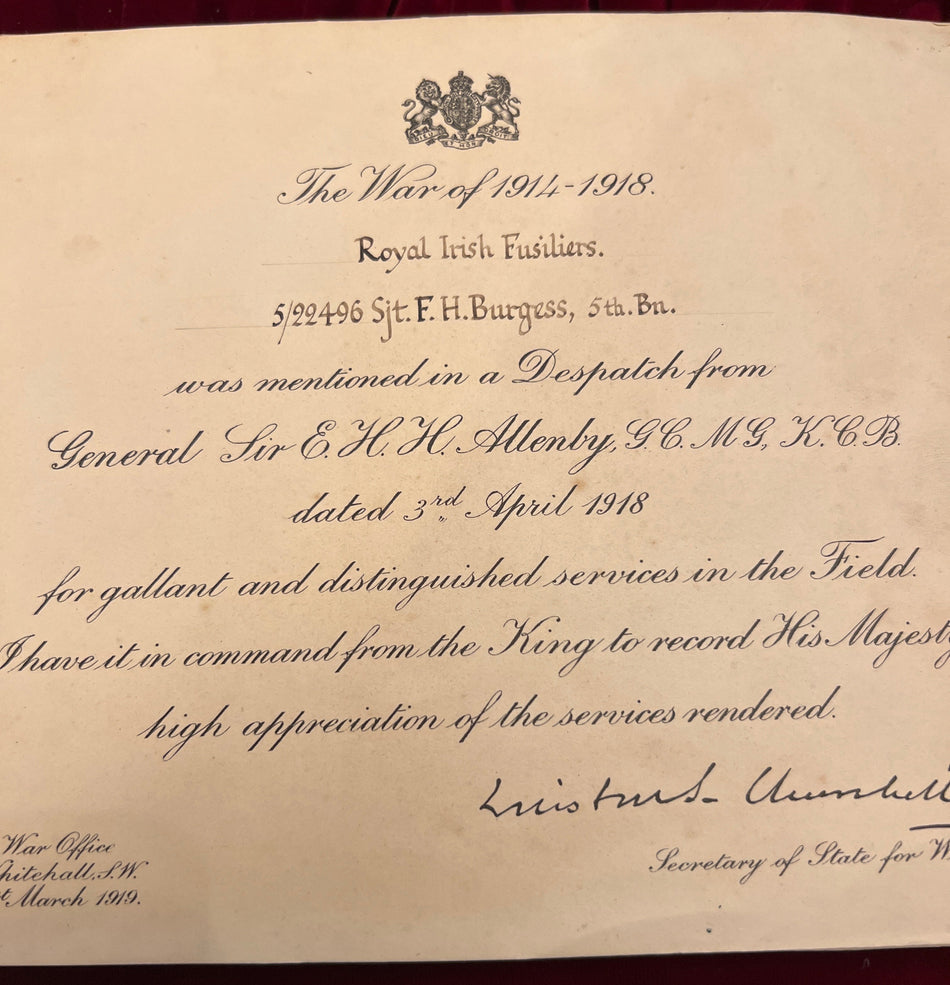 DIEU ET MON DROIT
The War of 1914-1918.
Royal Irish Fusiliers.
5/22496 Sjt. F. H. Burgess, 5th. Bn.
was mentioned in a Despatch from
General Sir E. H. H. Allenby, G.C.M.G., K.C.B.
dated 3rd April 1918
for gallant and distinguished services in the Field.
I have it in command from the King to record His Majesty
high appreciation of the services rendered.
Winston S. Churchill
Secretary of State for W
War Office
hitehall, S.W.
t March 1919.